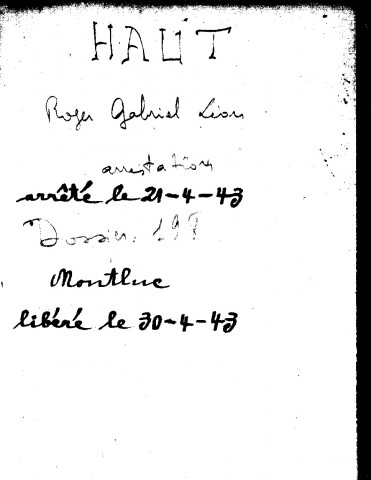 HAUT
Roger Gabriel Léon
arrestation
arrêté le 21-4-43
Dossier. 197
Montluc
libéré le 30-4-43